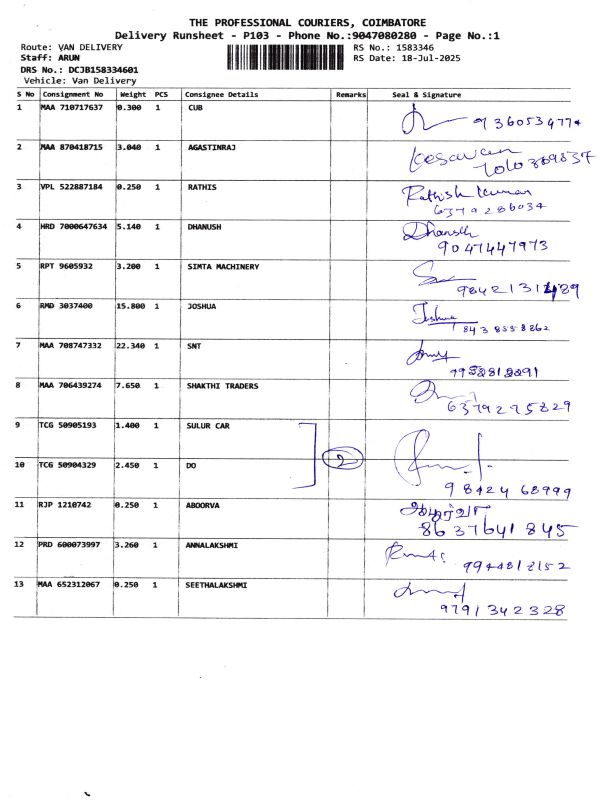 THE PROFESSIONAL COURIERS, COIMBATORE
Delivery Runsheet - P103 - Phone No.:9047080280 - Page No.:1
Route: VAN DELIVERY
RS No.: 1583346
Staff: ARUN
RS Date: 18-Jul-2025
DRS No.: DCJB158334601
Vehicle: Van Delivery
S No Consignment No Weight PCS Consignee Details Remarks Seal & Signature
1 MAA 710717637 0.300 1 CUB
2 MAA 870418715 3.040 1 AGASTINRAJ Kesavan
3 VPL 522887184 0.250 1 RATHIS Rathish kumar
6379286034
4 HRD 7000647634 5.140 1 DHANUSH Dhanush
9047447973
5 RPT 9605932 3.200 1 SIMTA MACHINERY
6 RMD 3037400 15.800 1 JOSHUA Joshua
7 MAA 708747332 22.340 1 SNT
8 MAA 706439274 7.650 1 SHAKTHI TRADERS
6379275829
9 TCG 50905193 1.400 1 SULUR CAR
10 TCG 50904329 2.450 1 DO 2
98424 68999
11 RJP 1210742 0.250 1 ABOORVA
8637641845
12 PRD 600073997 3.260 1 ANNALAKSHMI
13 MAA 652312067 0.250 1 SEETHALAKSHMI
9791342328